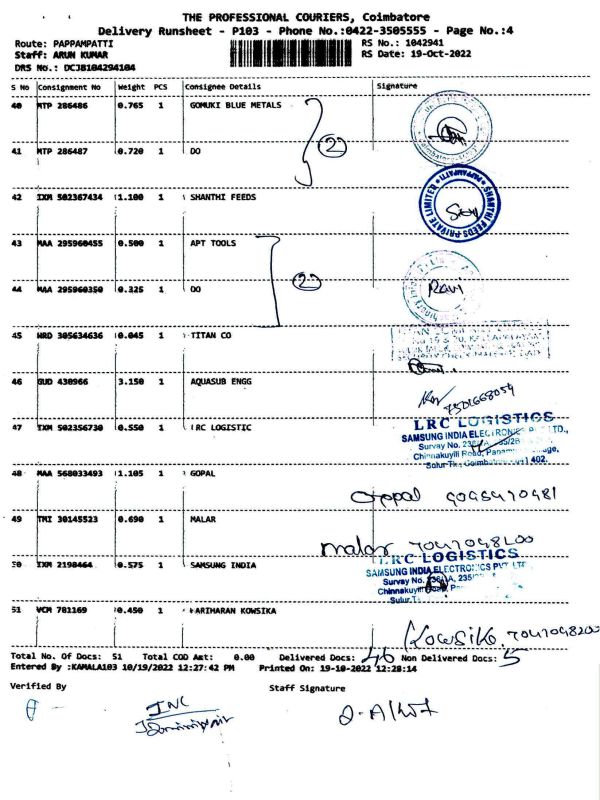 THE PROFESSIONAL COURIERS, Coimbatore
Delivery Runsheet - P103 - Phone No.:0422-3505555 - Page No.:4
Route: PAPPAMPATTI RS No.: 1042941
Staff: ARUN KUMAR RS Date: 19-Oct-2022
DRS No.: DCJB104294104
S No Consignment No Weight PCS Consignee Details Signature
40 MTP 286486 0.765 1 GOMUKI BLUE METALS
2
41 MTP 286487 0.720 1 DO
42 IXM 502367434 1.100 1 SHANTHI FEEDS
SHANTHI FEEDS PRIVATE LIMITED PAPPAMPATTI
43 MAA 295960455 0.500 1 APT TOOLS
2
44 MAA 295960350 0.325 1 DO
Ravi
45 HRD 305634636 0.045 1 TITAN CO
46 GUD 430966 3.150 1 AQUASUB ENGG
47 IXM 502356730 0.550 1 LRC LOGISTIC
LRC LOGISTICS
SAMSUNG INDIA ELECTRONICS P LTD.,
Survay No.
Chinnakuyili Road,
Sulur Tk., Coimbatore 402.
48 MAA 568033493 1.105 1 GOPAL
Goppal 9095470481
49 TRI 30145523 0.690 1 MALAR
malar 7047048200
50 IXM 2198464 0.575 1 SAMSUNG INDIA
LRC LOGISTICS
SAMSUNG INDIA ELECTRONICS PVT LTD
Survey No.
Chinnakuyili
Sulur T
51 VCM 781169 0.450 1 HARIHARAN KOWSIKA
Kowsika. 7047048200
Total No. Of Docs: 51 Total COD Amt: 0.00 Delivered Docs: 46 Non Delivered Docs: 5
Entered By :KAMALA103 10/19/2022 12:27:42 PM Printed On: 19-10-2022 12:28:14
Verified By Staff Signature
INC